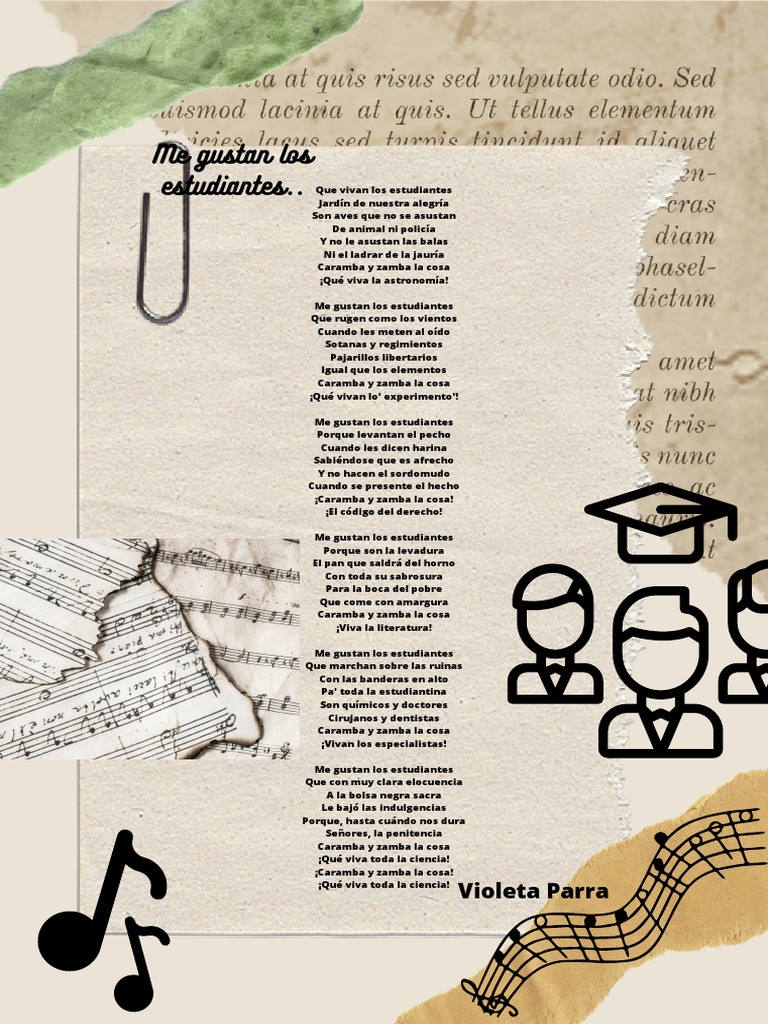 nia at quis risus sed vulputate odio. Sed
euismod lacinia at quis. Ut tellus elementum
ultricies lacus sed turpis tincidunt id aliquet
en-
cras
diam
phasel-
dictum
amet
at nibh
is tris-
is nunc
ac
Me gustan los
estudiantes..
Que vivan los estudiantes
Jardín de nuestra alegría
Son aves que no se asustan
De animal ni policía
Y no le asustan las balas
Ni el ladrar de la jauría
Caramba y zamba la cosa
¡Qué viva la astronomía!
Me gustan los estudiantes
Que rugen como los vientos
Cuando les meten al oído
Sotanas y regimientos
Pajarillos libertarios
Igual que los elementos
Caramba y zamba la cosa
¡Qué vivan lo' experimento'!
Me gustan los estudiantes
Porque levantan el pecho
Cuando les dicen harina
Sabiéndose que es afrecho
Y no hacen el sordomudo
Cuando se presente el hecho
¡Caramba y zamba la cosa!
¡El código del derecho!
Me gustan los estudiantes
Porque son la levadura
El pan que saldrá del horno
Con toda su sabrosura
Para la boca del pobre
Que come con amargura
Caramba y zamba la cosa
¡Viva la literatura!
Me gustan los estudiantes
Que marchan sobre las ruinas
Con las banderas en alto
Pa' toda la estudiantina
Son químicos y doctores
Cirujanos y dentistas
Caramba y zamba la cosa
¡Vivan los especialistas!
Me gustan los estudiantes
Que con muy clara elocuencia
A la bolsa negra sacra
Le bajó las indulgencias
Porque, hasta cuándo nos dura
Señores, la penitencia
Caramba y zamba la cosa
¡Qué viva toda la ciencia!
¡Caramba y zamba la cosa!
¡Qué viva toda la ciencia!
Violeta Parra